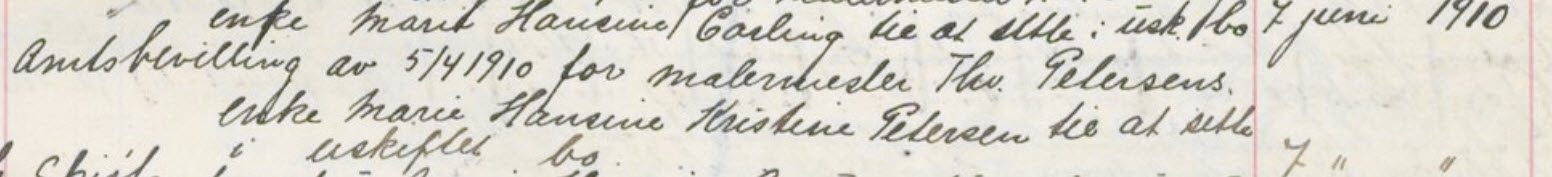 enke Marit Hansine Easling til at sitte i usk. bo 7 juni 1910
Amtsbevilling av 5/4 1910 for malermester Thv. Petersens
enke Marie Hansine Kristine Petersen til at sitte
i uskiftet bo. 7 " "